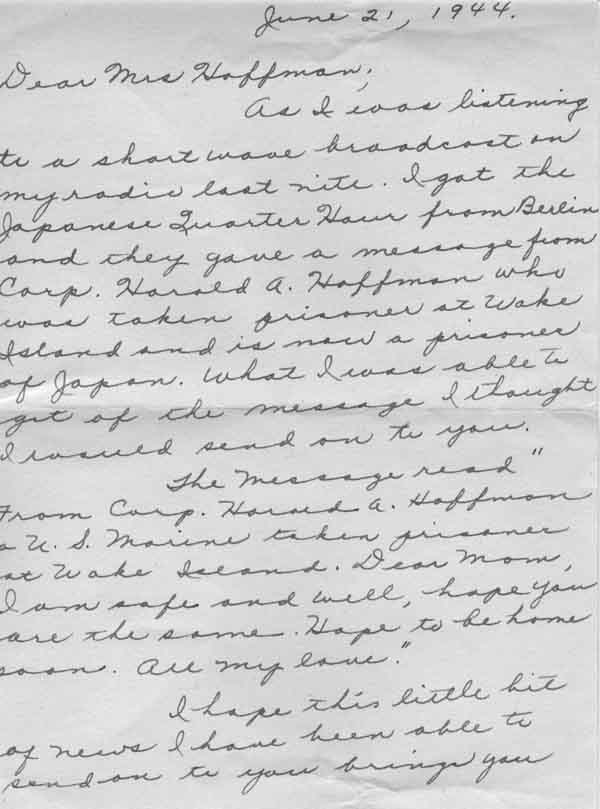 June 21, 1944.
Dear Mrs Hoffman;
As I was listening
to a short wave broadcast on
my radio last nite. I got the
Japanese Quarter Hour from Berlin
and they gave a message from
Corp. Harold A. Hoffman who
was taken prisoner at Wake
Island and is now a prisoner
of Japan. What I was able to
get of the message I thought
I would send on to you.
The Message read "
From Corp. Harold A. Hoffman
a U. S. Marine taken prisoner
at Wake Island. Dear Mom,
I am safe and well, hope you
are the same. Hope to be home
soon. All my love."
I hope this little bit
of news I have been able to
send on to you brings you